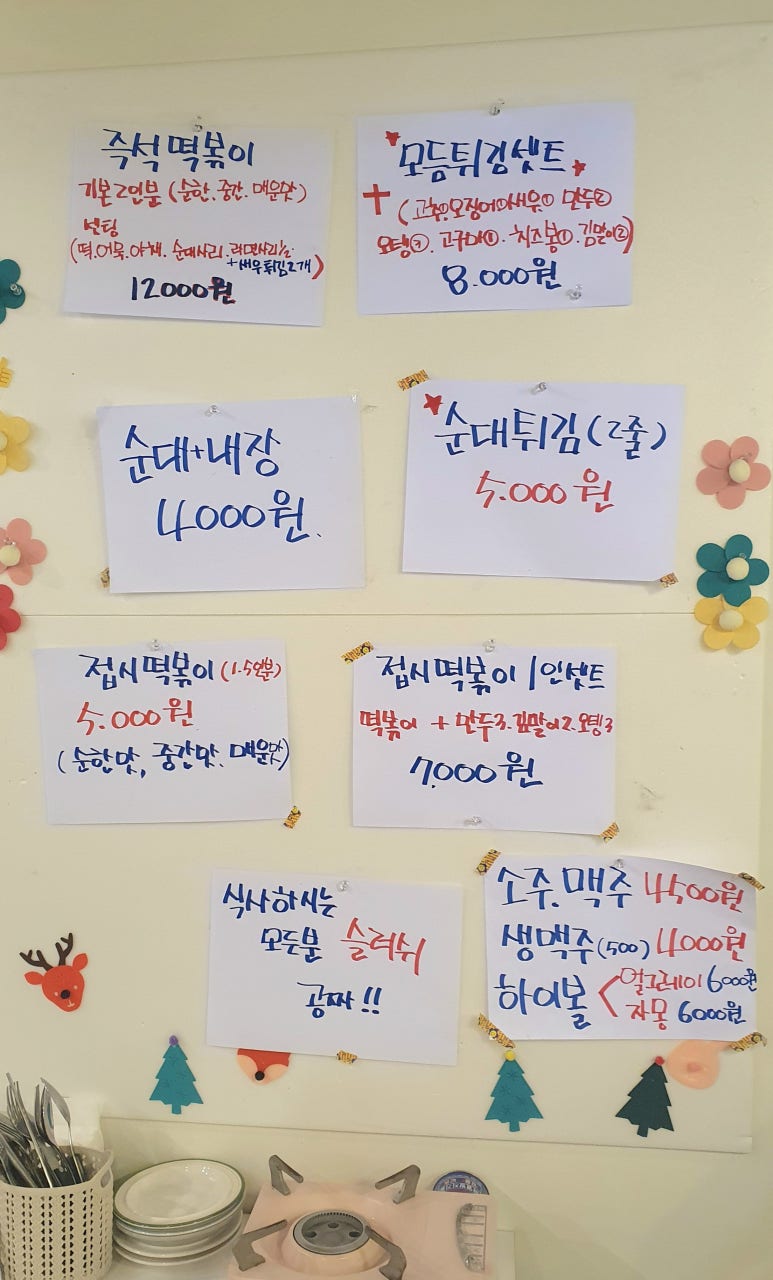 즉석 떡볶이
기본2인분 (순한.중간.매운맛)
(떡.어묵.야채. 순대사리.라면사리½
+새우튀김2개)
12000원
모듬튀김셋트
+ (고추①.오징어①새우① 만두②
오뎅②.고구마①.치즈봉①.김말이②)
8.000원
순대+내장
4000원.
순대튀김(2줄)
5.000원
접시떡볶이(1.5인분)
5.000원
(순한맛, 중간맛. 매운맛)
접시떡볶이 1인셋트
떡볶이 + 만두3.김말이2.오뎅3
7.000원
식사하시는
모두분 슬러쉬
공짜!!
소주.맥주 4500원
생맥주(500) 4000원
하이볼 < 얼그레이 6000원
자몽 6000원